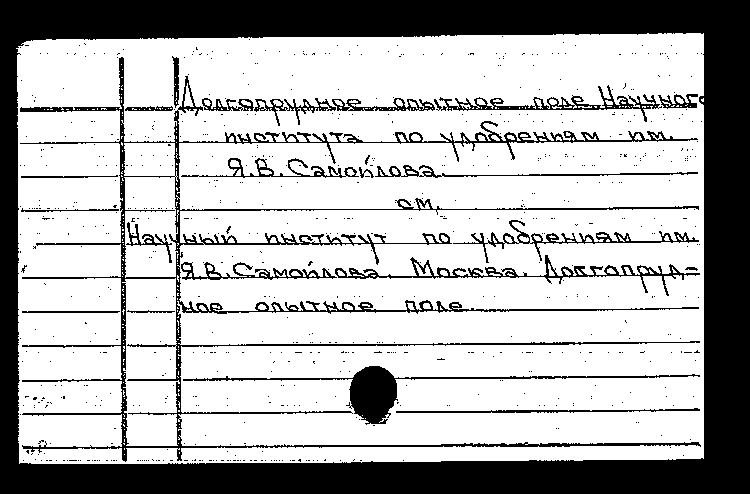 Долгопрудное опытное поле Научного
института по удобрениям им.
Я.В. Самойлова.
см.
Научный институт по удобрениям им.
Я.В. Самойлова. Москва. Долгопруд=
ное опытное поле.